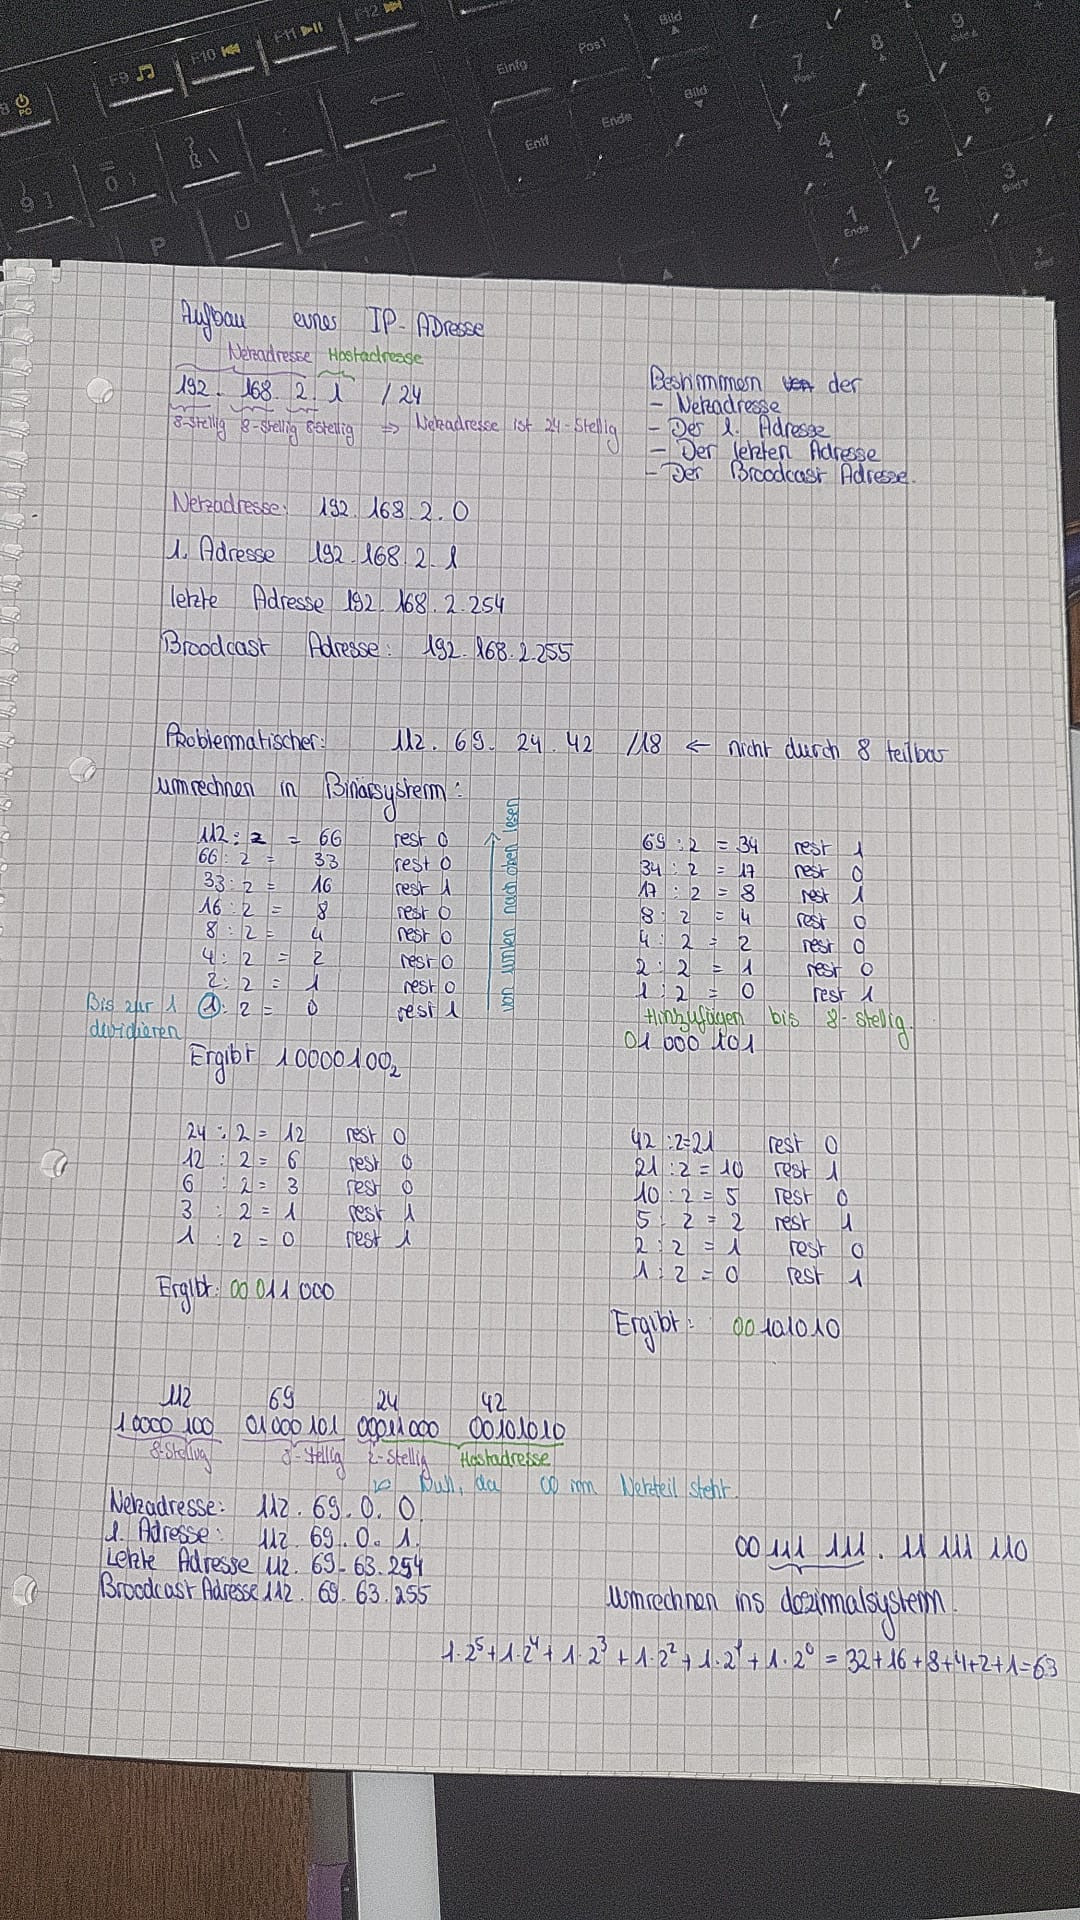 F9
F10
F11
F12
8
PC
Einfg
Pos1
Bild
Entf
Ende
Bild
7
Pos1
8
9
4
5
6
1
Ende
2
3
9 ]
0 }
ß \
P
Ü
Aufbau eines IP-ADresse
Netzadresse Hostadresse
192. 168. 2. 1 / 24
8-stellig 8-stellig 8stellig => Netzadresse ist 24-stellig
Bestimmen der
- Netzadresse
- Der 1. Adresse
- Der letzten Adresse
- Der Broodcast Adresse.
Netzadresse: 192. 168. 2. 0
1. Adresse 192. 168. 2. 1
letzte Adresse 192. 168. 2. 254
Broodcast Adresse: 192. 168. 2. 255
Problematischer: 112. 69. 24. 42 /18 ← nicht durch 8 teilbar
umrechnen in Binärsystem:
112 : 2 = 66 rest 0
66 : 2 = 33 rest 0
33 : 2 = 16 rest 1
16 : 2 = 8 rest 0
8 : 2 = 4 rest 0
4 : 2 = 2 rest 0
2 : 2 = 1 rest 0
Bis zur 1 1 : 2 = 0 rest 1
dividieren
von unten nach oben lesen
Ergibt 10000100₂
69 : 2 = 34 rest 1
34 : 2 = 17 rest 0
17 : 2 = 8 rest 1
8 : 2 = 4 rest 0
4 : 2 = 2 rest 0
2 : 2 = 1 rest 0
1 : 2 = 0 rest 1
Hinzufügen bis 8-stellig.
01 000 101
24 : 2 = 12 rest 0
12 : 2 = 6 rest 0
6 : 2 = 3 rest 0
3 : 2 = 1 rest 1
1 : 2 = 0 rest 1
Ergibt: 00 011 000
42 : 2 = 21 rest 0
21 : 2 = 10 rest 1
10 : 2 = 5 rest 0
5 : 2 = 2 rest 1
2 : 2 = 1 rest 0
1 : 2 = 0 rest 1
Ergibt: 00 101010
112 69 24 42
10000 100 01 000 101 00011000 00101010
8-stellig 8-stellig 2-stellig Hostadresse
Null, da 00 im Netzteil steht.
Netzadresse: 112. 69. 0. 0.
1. Adresse: 112. 69. 0. 1.
Letzte Adresse 112. 69. 63. 254
Broodcast Adresse 112. 69. 63. 255
00 111 111 . 11 111 110
Umrechnen ins dezimalsystem.
1·2⁵+1·2⁴+1·2³+1·2²+1·2¹+1·2⁰ = 32+16+8+4+2+1=63